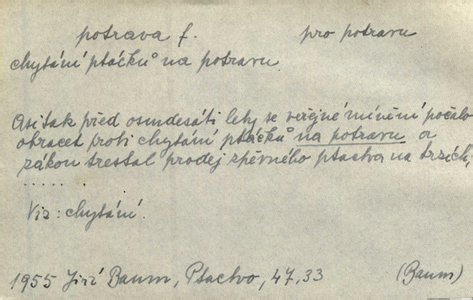 potrava f. pro potravu
chytání ptáčků na potravu.
Asi tak před osmdesáti lety se veřejné mínění počalo
obracet proti chytání ptáčků na potravu a
zákon trestal prodej zpěvného ptactva na trzích,
.....
Viz: chytání.
1955 Jiří Baum, Ptactvo, 47,33 (Baum)